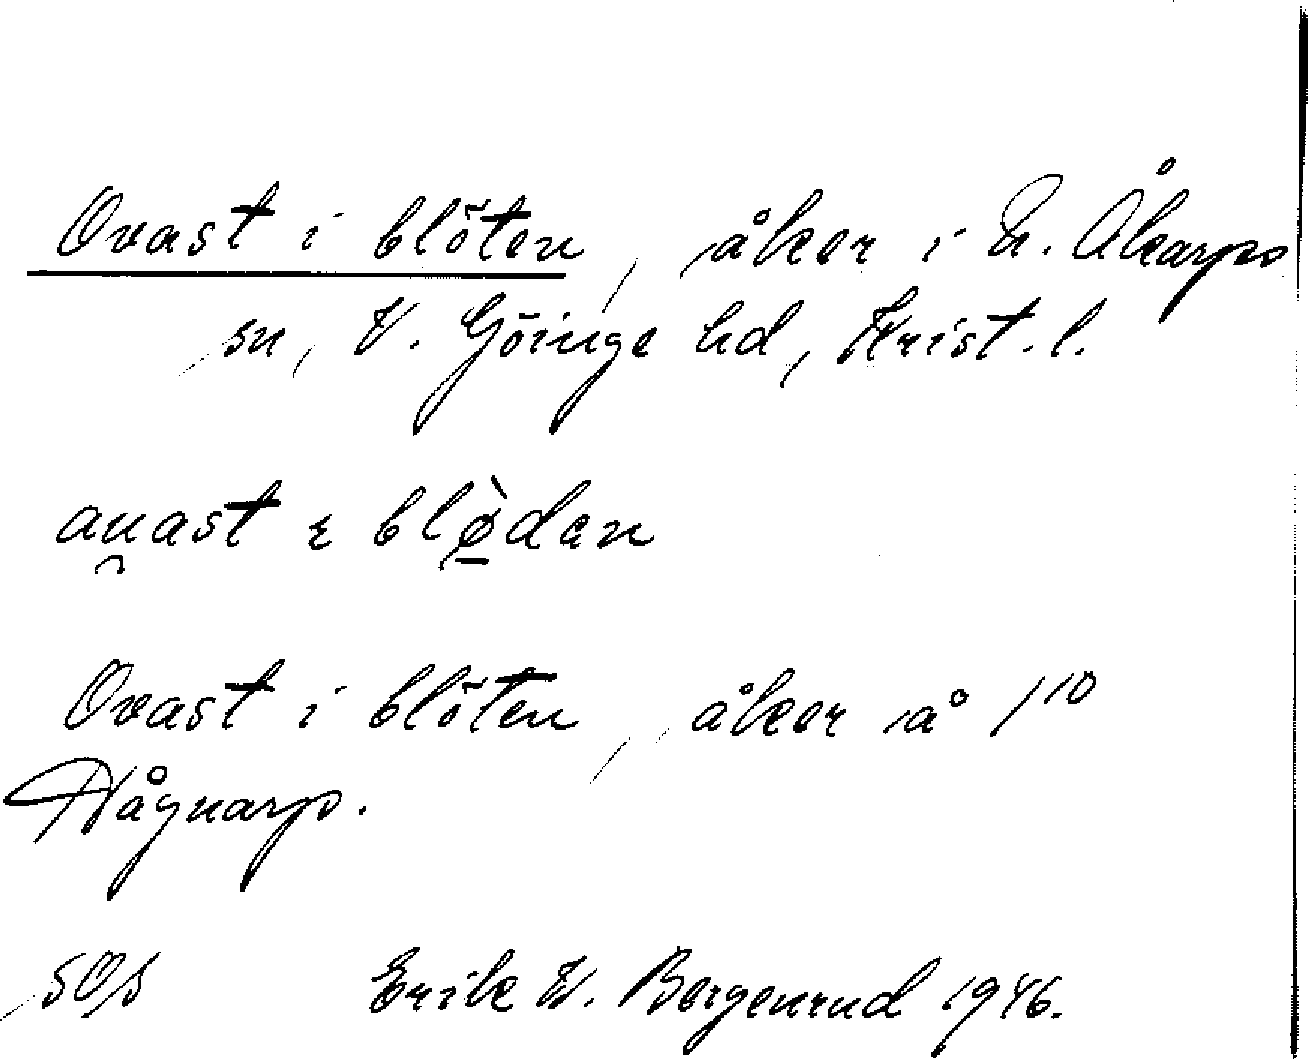 Ovast i blöten, åker i N. Åkarps
sn, V. Göinge hd, Krist. l.
au̯ast ɩ blø̠̀dan
Ovast i blöten, åker å 1¹⁰
Hågnarp.
SOS Erik W. Bergenrud 1946.